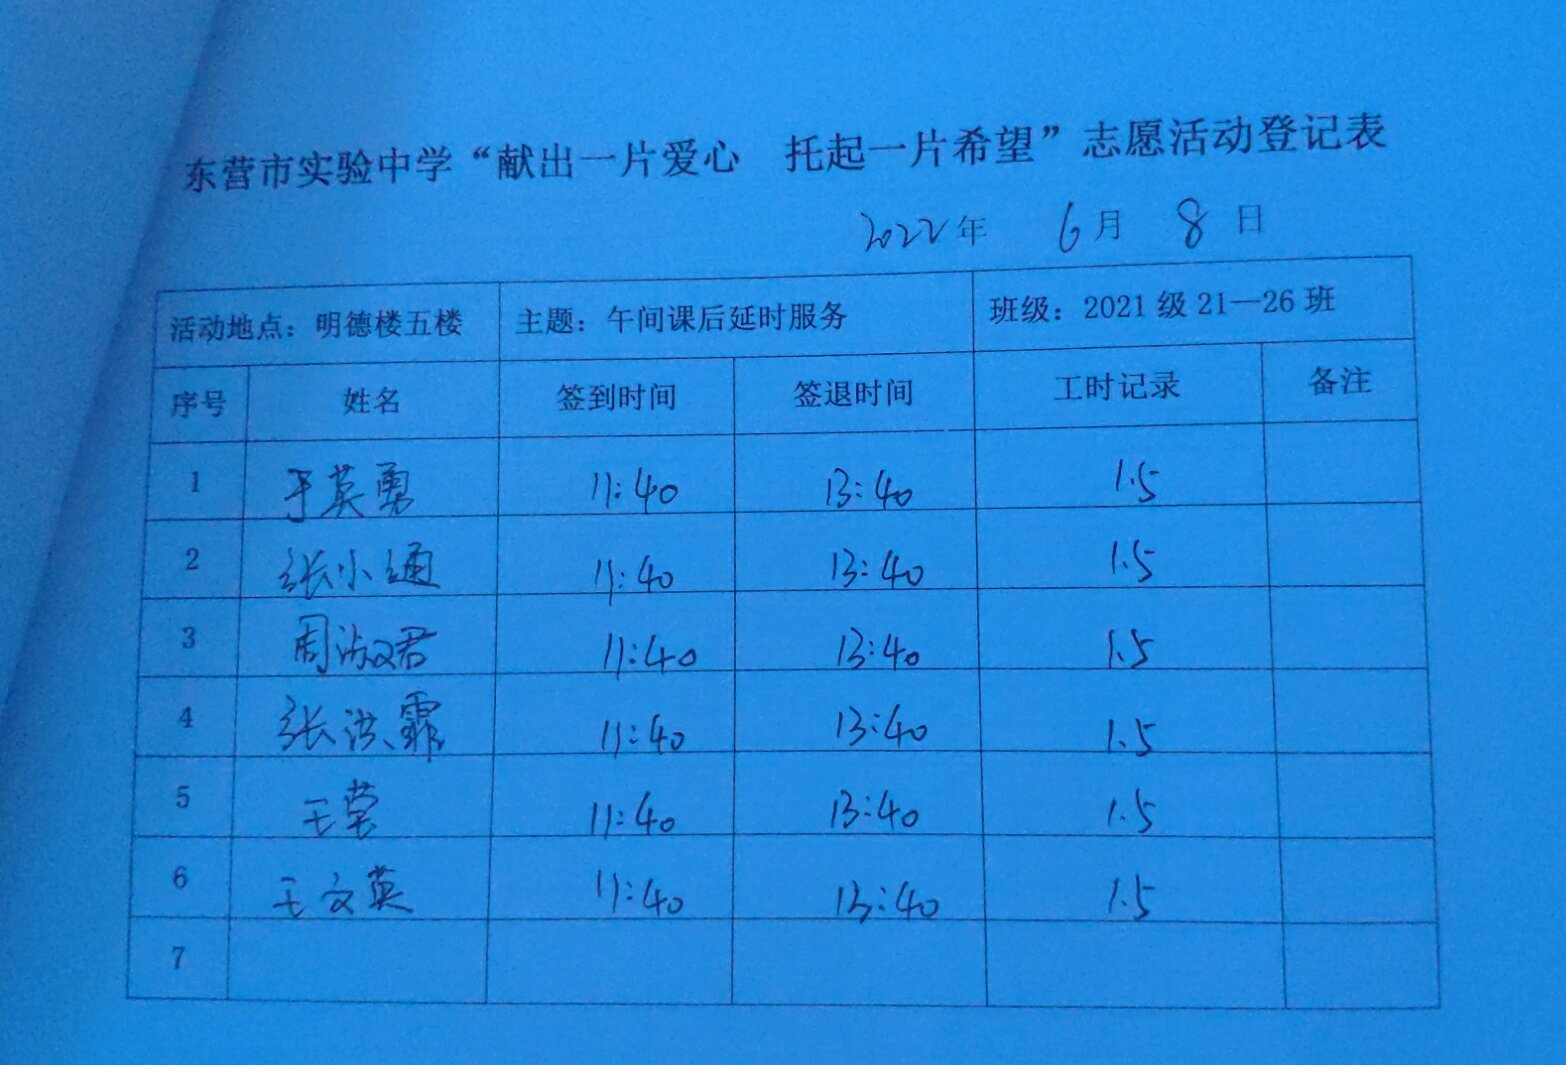 东营市实验中学“献出一片爱心 托起一片希望”志愿活动登记表
2022年 6月 8日
活动地点：明德楼五楼 主题：午间课后延时服务 班级：2021级21—26班
序号 姓名 签到时间 签退时间 工时记录 备注
1 于英勇 11:40 13:40 1.5
2 张小通 11:40 13:40 1.5
3 周淑君 11:40 13:40 1.5
4 张洪霏 11:40 13:40 1.5
5 王莹 11:40 13:40 1.5
6 王文英 11:40 13:40 1.5
7